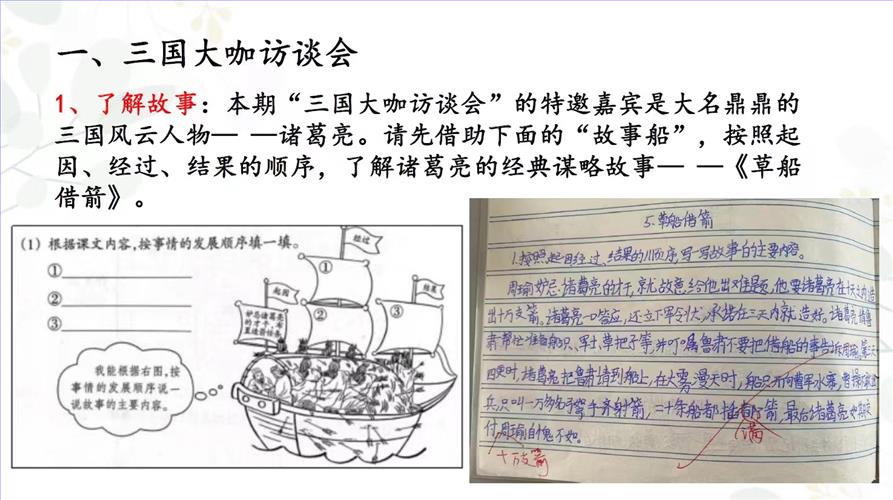 一、三国大咖访谈会
1、了解故事：本期“三国大咖访谈会”的特邀嘉宾是大名鼎鼎的
三国风云人物— —诸葛亮。请先借助下面的“故事船”，按照起
因、经过、结果的顺序，了解诸葛亮的经典谋略故事— —《草船
借箭》。
(1) 根据课文内容,按事情的发展顺序填一填。
①
②
③
我能根据右图,按
事情的发展顺序说一
说故事的主要内容。
经过
①
起因
结果
妒忌诸葛亮
的才干,布
置造箭任务
②
③
5.草船借箭
1.按照起因经过、结果的顺序写一写故事的主要内容。
周瑜妒忌诸葛亮的才干,就故意给他出难题,他要诸葛亮在十天之内造
出十万支箭。诸葛亮一口答应,还立下军令状,承诺在三天内就造好。诸葛亮请鲁
肃帮忙准备船只、军士、草把子等,并叮嘱鲁肃不要把借船的事告诉周瑜,第三天
四更时,诸葛亮把鲁肃请到船上,在大雾漫天时,船只开向曹军水寨,曹操
兵只叫一万多名弓弩手齐射箭,二十条船都插箭,最后诸葛亮如期交
付周瑜自愧不如。
满
十万支箭